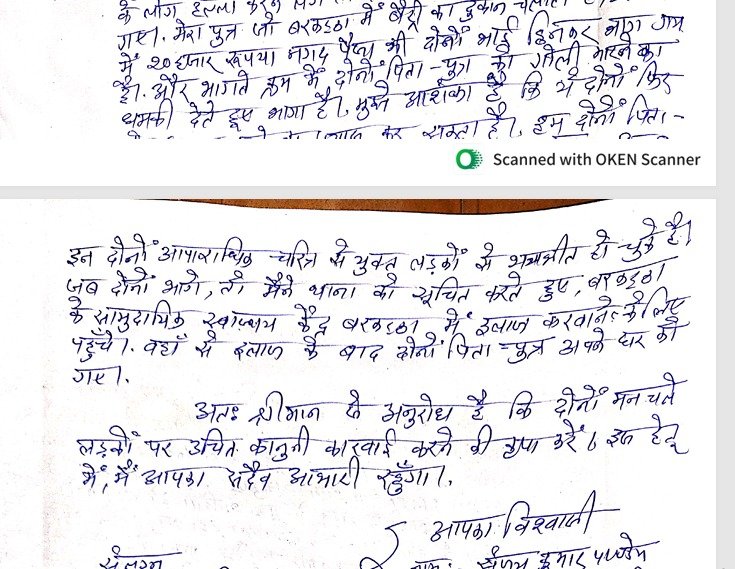 के लोग हल्ला करने लगे
गए। मेरा पुत्र जो बरकट्ठा में बैट्री का दुकान चलाता है
में 20 हजार रूपया नगद पैसा भी दोनों भाई छिनकर भाग गया
है। और भागते क्रम में दोनों पिता-पुत्र को गोली मारने का
धमकी देते हुए भागा है। मुझे आशंका है कि ये दोनों फिर
कर सकता है। हम दोनों पिता-
Scanned with OKEN Scanner
इन दोनों आपाराधिक चरित्र से युक्त लड़कों से भयभीत हो चुके है।
जब दोनों भागे, तो मैंने थाना को सूचित करते हुए, बरकट्ठा
के सामुदायिक स्वास्थ्य केंद्र बरकट्ठा में इलाज करवाने के लिए
पहुँचे। वहाँ से इलाज के बाद दोनों पिता-पुत्र अपने घर को
गए।
अतः श्रीमान से अनुरोध है कि दोनों मनचले
लड़कों पर उचित कानुनी कारवाई करने की कृपा करें। इस हेतू
में, मैं आपका सदैव आभारी रहुँगा।
आपका विश्वासी
संलग्न
नाम: संजय कुमार पाण्डेय